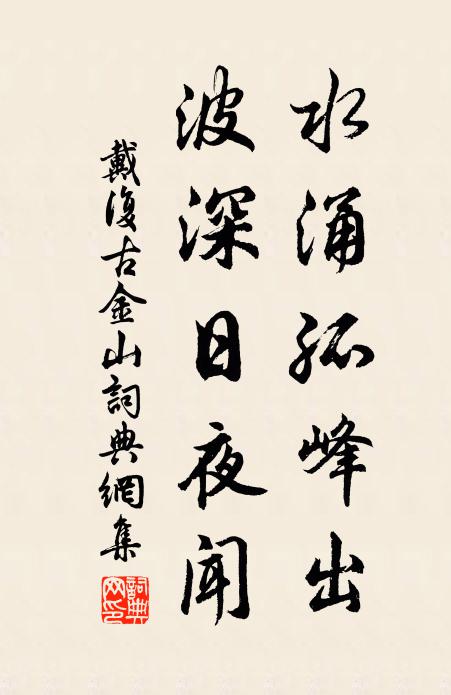 水涌孤峰出
波深日夜闻
戴復古金山詞典網集
詞典网印